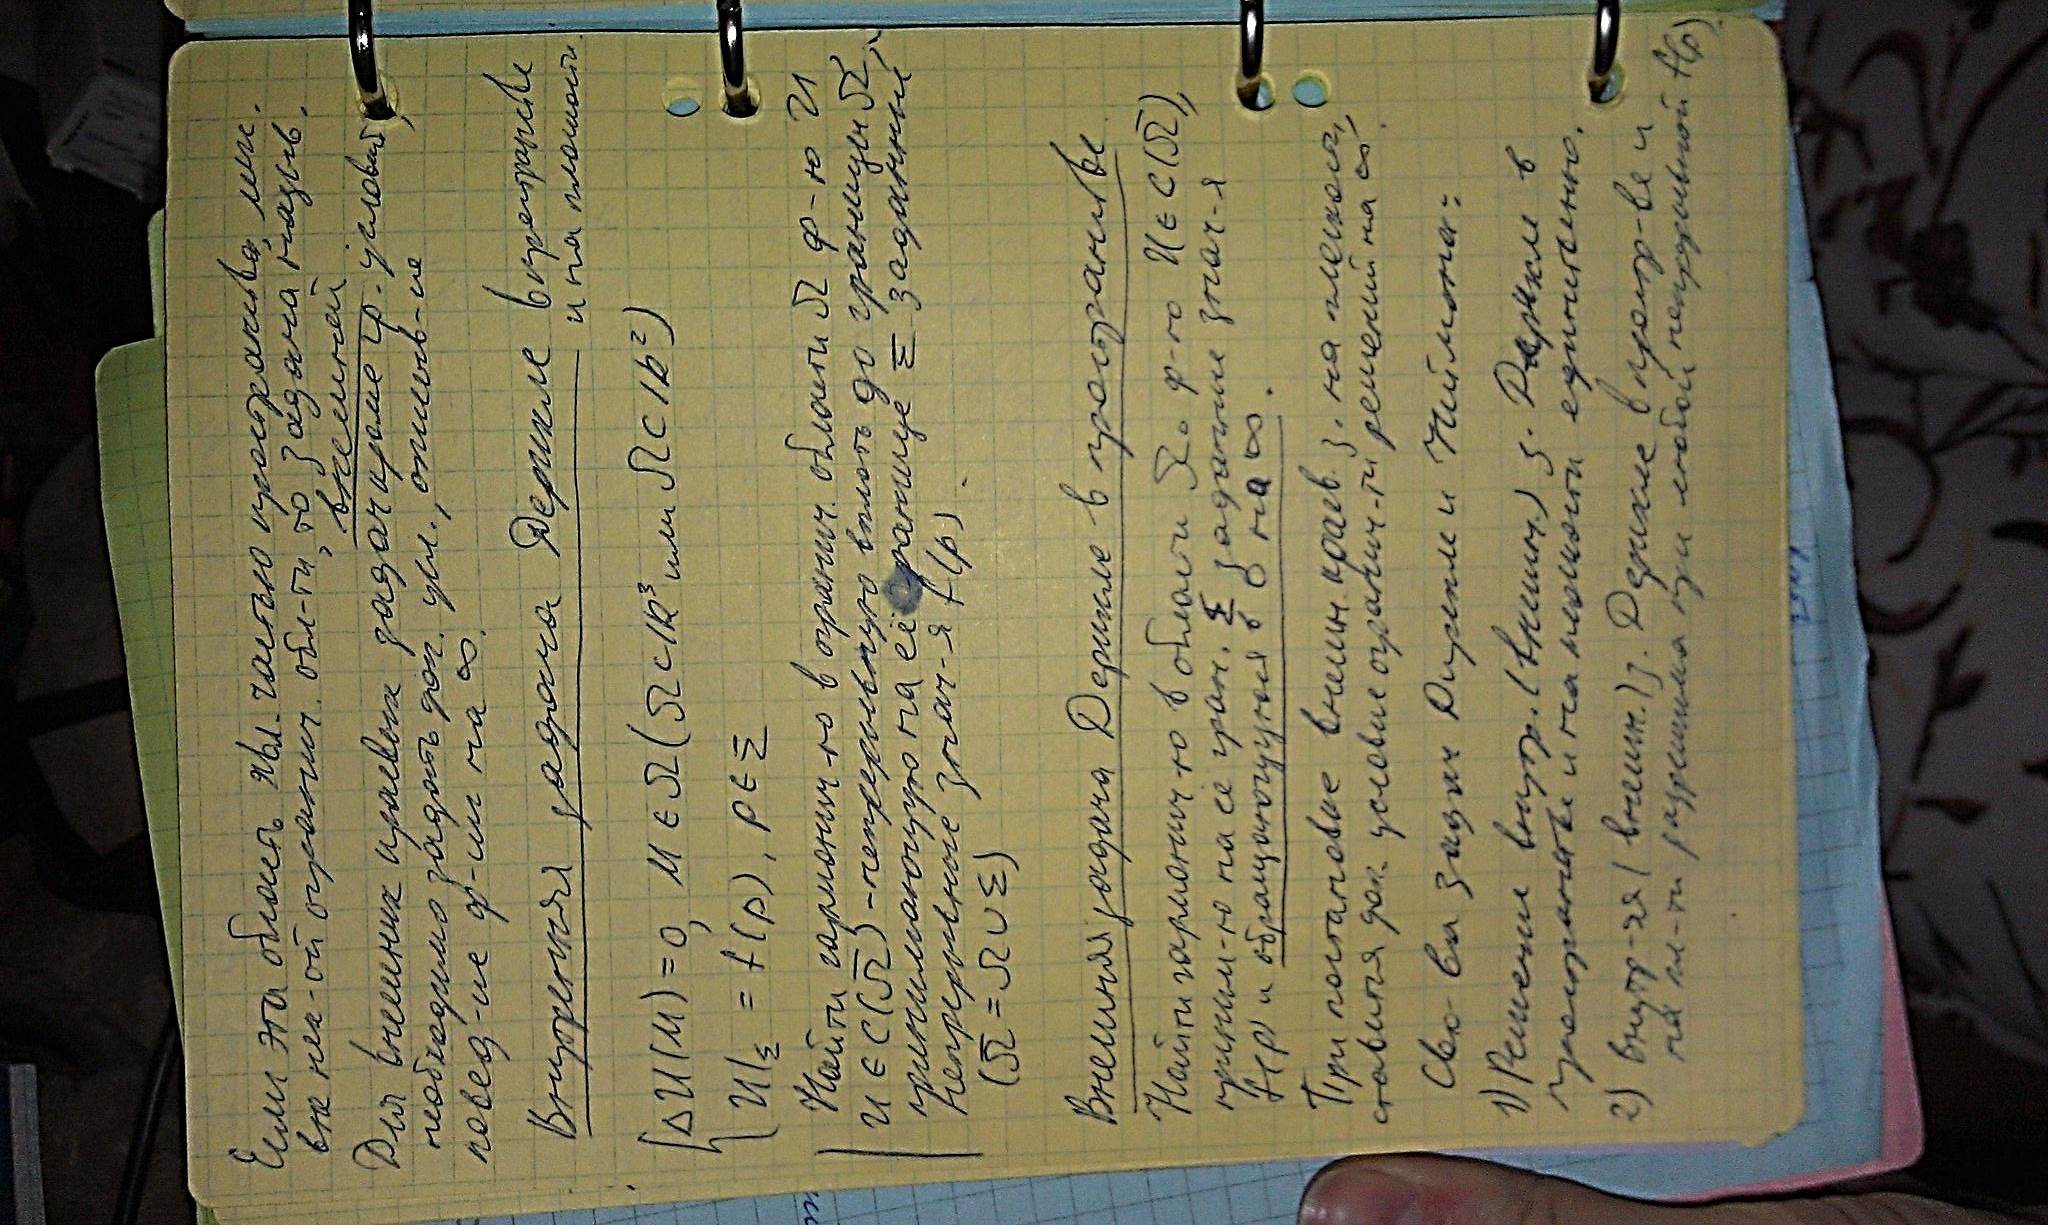 Если эта область явл. частью пространства, лин.
вк нек-ой огранич. обл-ти, то задача назыв.
внешней
Для внешних краевых задач кроме гр. условий,
необходимо задать доп. усл., описыв-ие
повед-ие ф-ции на ∞.
Внутренняя задача Дерихле в пространстве
и на плоскости.
ΔU(M)=0, M ∈ Ω (Ω ⊂ R³ или Ω ⊂ R²)
U|Σ = f(p), p ∈ Σ
Найти гармонич-ю в огранич. области Ω ф-ю U
U ∈ C(Ω̅) - непрерывную вплоть до границы Ω,
принимающую на её границе Σ заданный
непрерывные знач-я f(p).
(Ω̅ = Ω ∪ Σ)
Внешняя задача Дерихле в пространстве
Найти гармонич-ю в области Ω. ф-ю U ∈ C(Ω̅),
приним-ю на её гран. Σ заданные знач-я
f(p) и обращающуюся в 0 на ∞.
При постановке внешн. краев. з. на плоскости,
ставится доп. условие огранич-ти решений на ∞.
Св-ва задач Дирихле и Неймана:
1) Решение внутр. (внешн.) з. Дерихле в
пространстве и на плоскости единственно.
2) Внутр-яя (внешн.) з. Дерихле в простр-ве и
на пл-ти разрешима при любой непрерывной f(p).